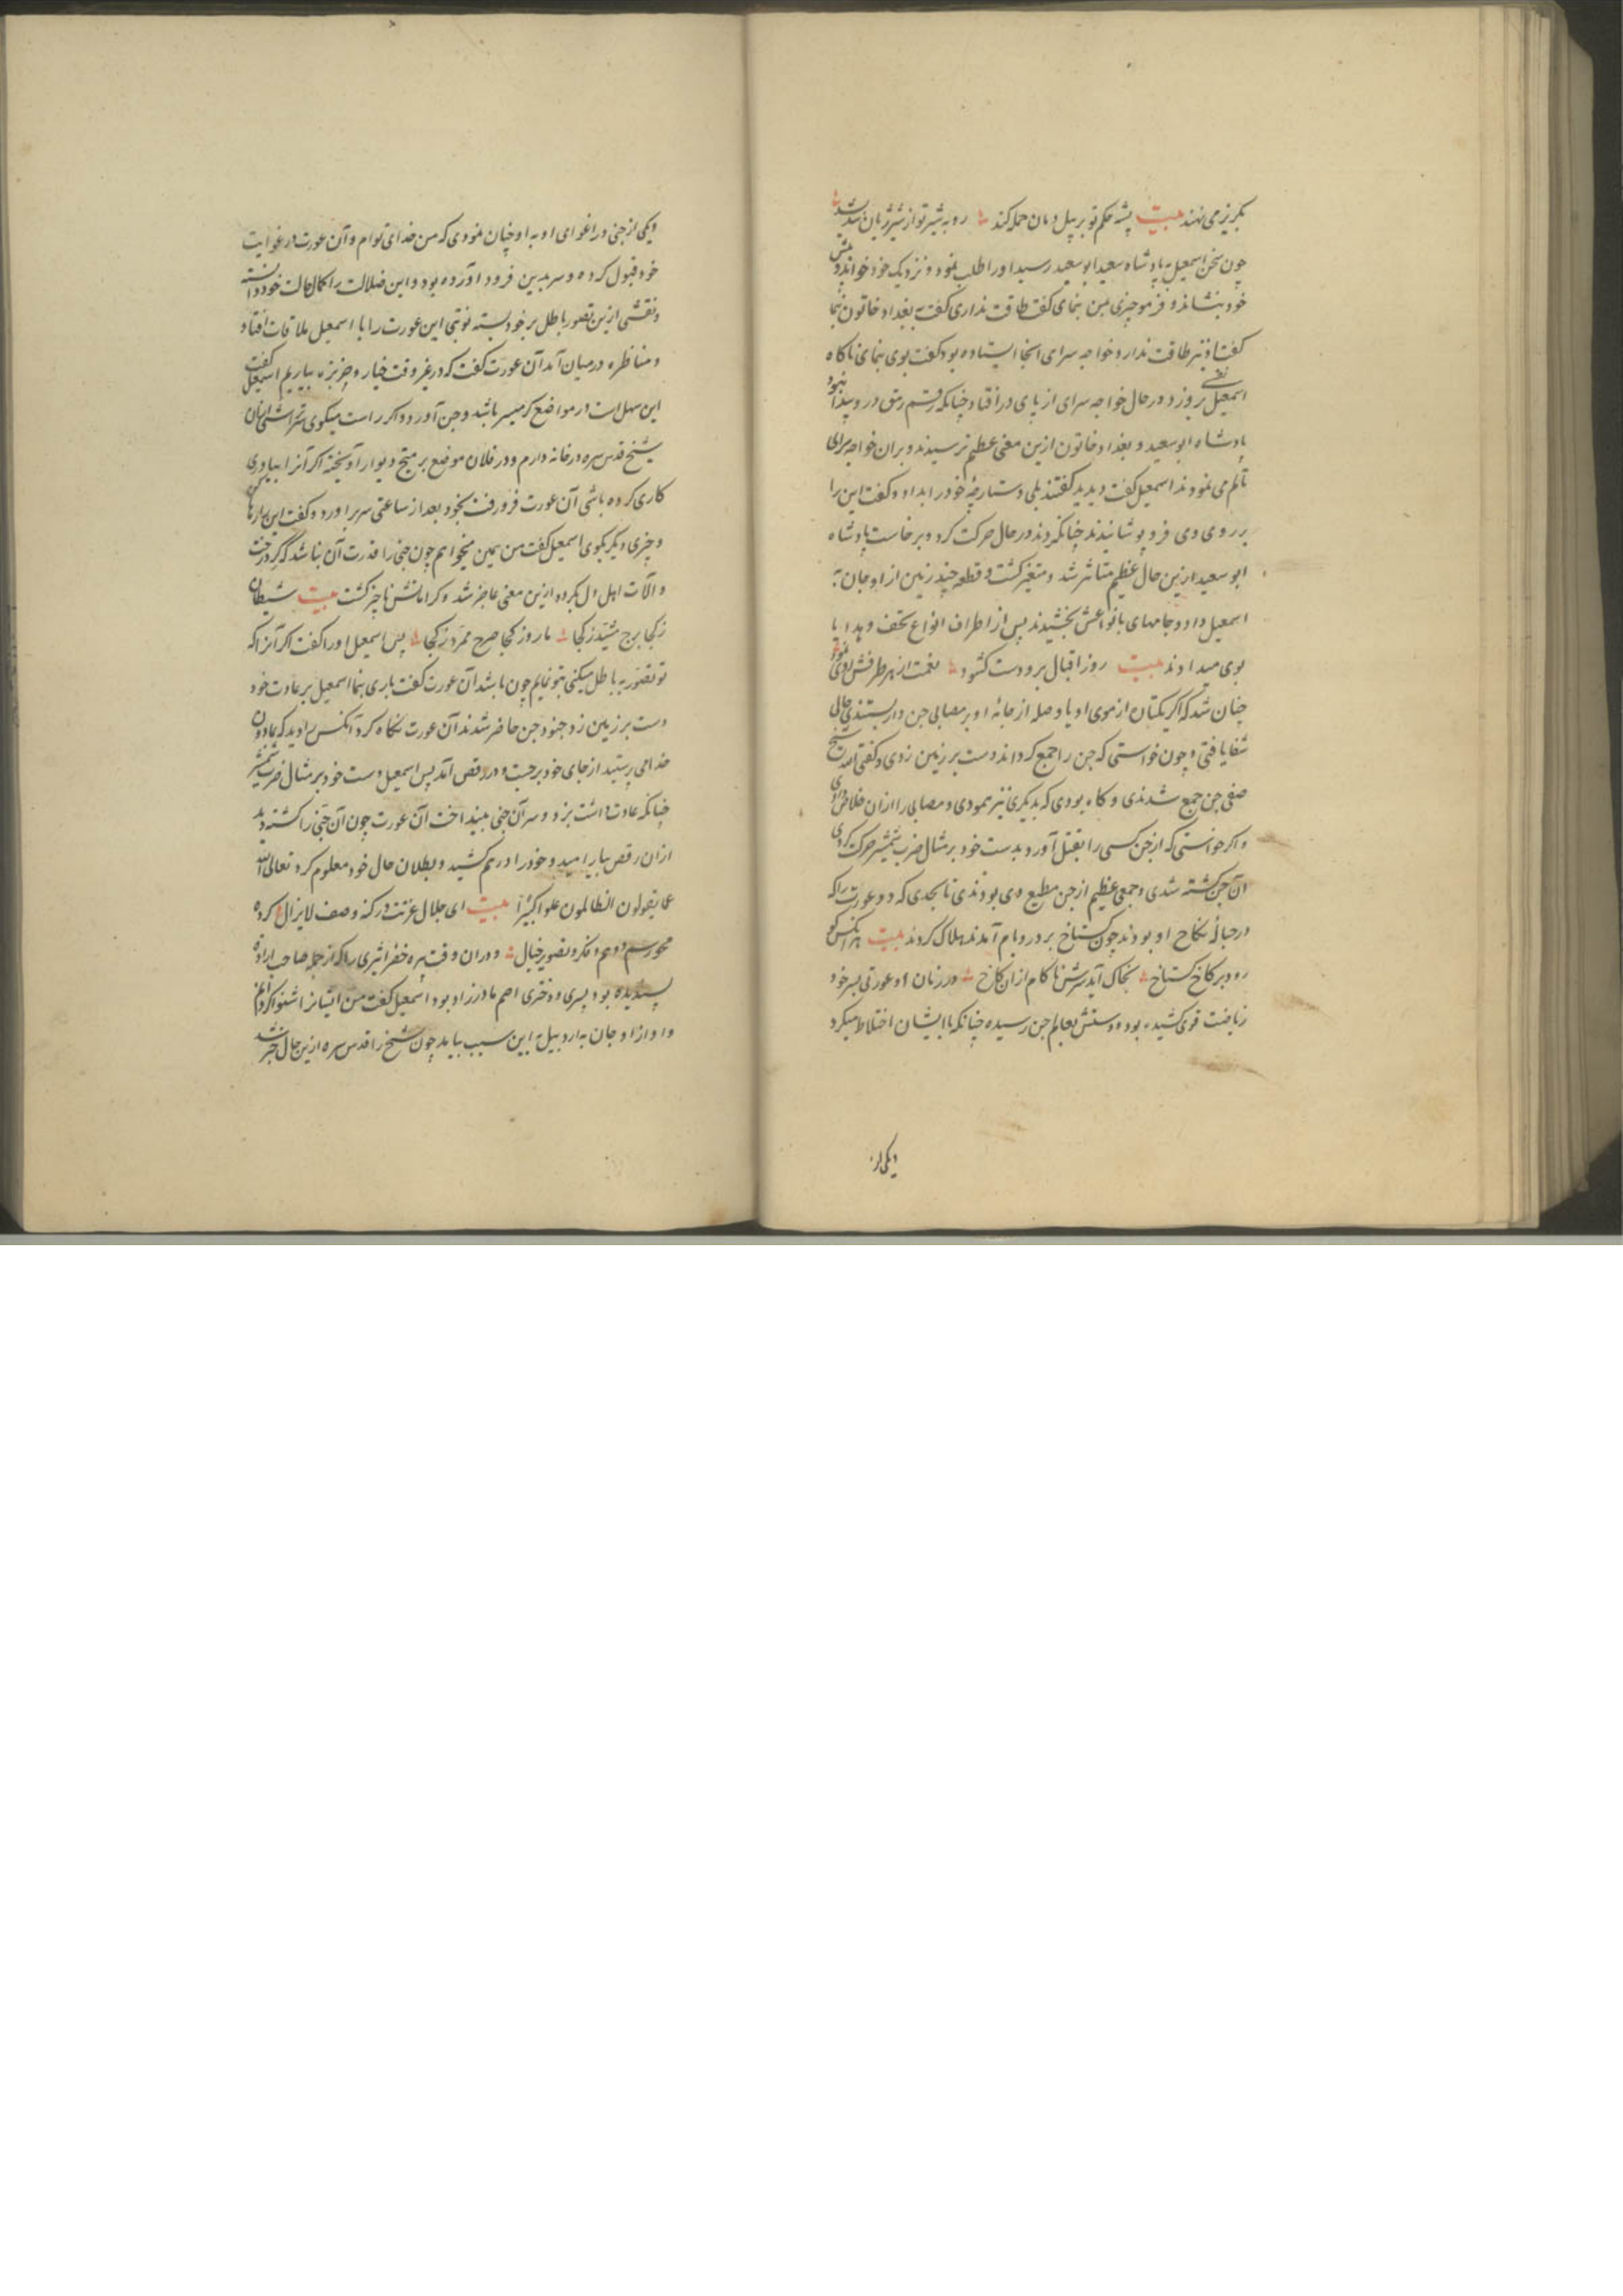 بکریز می نهند بیت پشه حکم تو بر پیل دمان حمله کند روبه شیر تو از شیر ژیان
چون سخن اسمعیل بپادشاه سعید ابو سعید رسید او را طلب نمود و نزدیک خود خواند و پیش
خود بنشاند و فرمود چیزی بمن بنمای کفت طاقت نداری کفت ببغداد خاتون بنما
کفت او نیز طاقت ندارد خواجه سرای انجا ایستاده بود کفت بوی بنمای ناکاه
اسمعیل نعره بروزد در حال خواجه سرای از پای در افتاد چنانکه رمق در وی پیدا نبود
پادشاه ابو سعید و بغداد خاتون ازین معنی عظیم ترسیدند و بران خواجه سرای
تألم می نمودند اسمعیل کفت دیدید کفتند بلی دستارچهٔ خود را بداد و کفت این را
بر روی وی فرو پوشانیدند چنانکردند در حال حرکت کرد و برخاست پادشاه
ابو سعید ازین حال عظیم متاثر شد و متغیر کشت و قطعه چند زمین از اوجان به
اسمعیل داد و جامهای بانواعش بخشیدند پس از اطراف انواع تحف و هدایا
بوی میدادند بیت روز اقبال برو دست کشود نعمت از هر طرفش روی نمود
چنان شد که اکر یکتاه از موی او یا وصله از جامهٔ او بر مصابی جن دار بستندی حالی
شفا یافتی و چون خواستی که جن را جمع کرداند دست بر زمین زدی و کفتی شیخ
صفی جن جمع شدندی و کاه بودی که بدیکری نیز نمودی و مصابی را ازان خلاص دادی
و اکر خواستی که از جن کسی را بقتل آورد بدست خود بر مثال ضرب شمشیر حرکت کردی
آن جن کشته شدی و جمعی عظیم از جن مطیع وی بودندی تا بحدی که دو عورت را که
در حبالهٔ نکاح او بودند چون کستاخ بر در و بام آمدند هلاک کردند بیت هر آنکس کو
رود بر کاخ کستاخ بخاک آید سرش ناکام ازان کاخ در زمان او عورتی بسر خود
ریاضت قوی کشیده بود و دستش بعالم جن رسیده چنانکه با ایشان اختلاط میکرد
ویکی از
ویکی از جنی در اغوای او به او چنان نمودی که من خدای توام و آن عورت در غوایت
خود قبول کرده و سر بدین فرود آورده بود و این ضلالت را کمال حالت خود دانسته
و نقشی ازین تصور باطل بر خود بسته نوبتی این عورت را با اسمعیل ملاقات افتاد
و مناظره در میان آمد آن عورت کفت که در غیر وقت خیار و خربزه بیاریم اسمعیل کفت
این سهل است در مواضع کرمسیر باشد و جن آورد و اکر راست میکوی
شیخ قدس سره در خانه دارم و در فلان موضع بر میخ دیوار آویخته اکر آنرا بیاوری
کاری کرده باشی آن عورت فرو رفت بخود بعد از ساعتی سر برآورد و کفت این بار رها کن
و چیزی دیکر بکوی اسمعیل کفت من همین میخواهم چون جنی را قدرت آن نباشد که کرد رخت
و آلات اهل دل بکردد ازین معنی عاجز شد و کراماتش ناچیز کشت بیت شیطان
ز کجا برج مشید ز کجا مار وز کجا صرح ممرد ز کجا پس اسمعیل او را کفت اکر آنرا که
تو تصور به باطل میکنی بتو نمایم چون باشد آن عورت کفت باری بنما اسمعیل بر عادت خود
دست بر زمین زد جنود جن حاضر شدند آن عورت نکاه کرد آنکس را دید که
خدا می پرستید از جای خود برجست و در رقص آمد پس اسمعیل دست خود بر مثال ضرب شمشیر
چنانکه عادت داشت بزد و سر آن جنی بینداخت آن عورت چون آن جنی را کشته دید
ازان رقص بیارامید و خود را در هم کشید و بطلان حال خود معلوم کرد تعالی الله
عما یقولون الظالمون علوا کبیرا بیت ای جلال عزتت در کنه وصف لایزال کرده
محو رسم وهم و فکر و تصویر خیال و دران وقت پیره خضر ابتری را که از جمله صاحب ارادت
پسندیده بود پسری و دختری اصم مادرزاد بود اسمعیل کفت من ایشانرا شنوا کردانم
و او از اوجان به اردبیل به این سبب بیامد چون شیخ را قدس سره ازین حال خبر شد